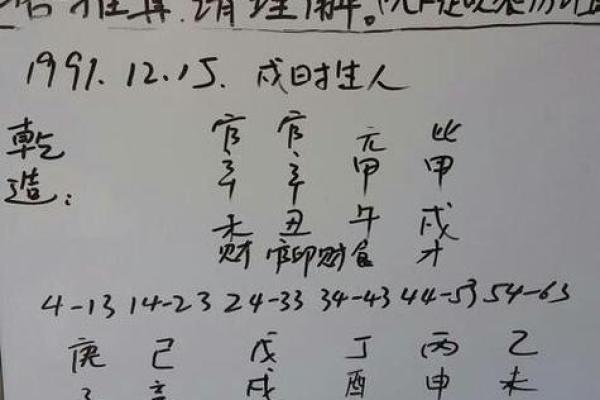 请理解。
1991.12.15. 戌时生人
乾造：
官 官 元 比
辛 辛 甲 甲
未 丑 午 戌
财 官印财 食 才
4-13 14-23 24-33 34-43 44-53 54-63
庚 己 戊 丁 丙 乙
亥 戌 酉 申 未